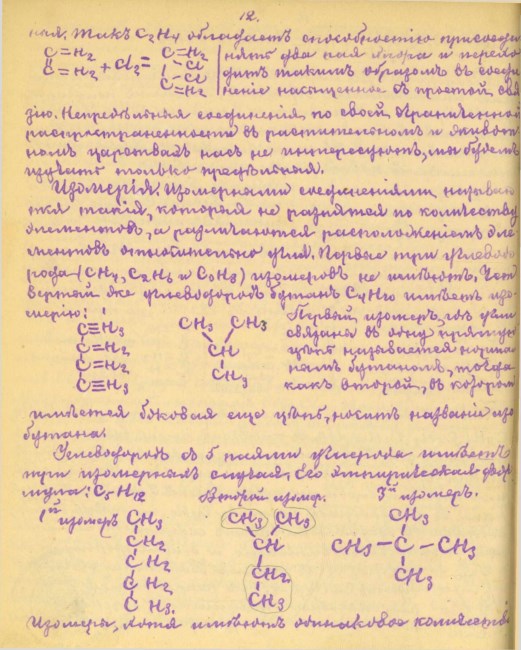 12.
ная. Такъ C₂H₄ обладаетъ способностью присоеди
C=H₂ C=H₂ нять два пая хлора и перехо
C=H₂ + Cl₂ = Cl Cl дить такимъ образомъ въ соеди
C=H₂ нение насыщенное съ простой свя
зію. Непредѣльныя соединенія, по своей ограниченной
распространенности въ растительномъ и живот
номъ царствахъ насъ не интересуютъ, мы будемъ
изучать только предѣльныя.
Изомерія: Изомерными соединеніями называю
тся такія, которыя не разнятся по количеству
элементовъ, а различаются расположеніемъ эле
ментовъ относительно угля. Первые три углеводо
рода (CH₄, C₂H₆ и C₃H₈) изомеровъ не имѣютъ. Чет
вертый же углеводородъ бутанъ C₄H₁₀ имѣетъ изо
мерію: Первый изомеръ, гдѣ угли
C≡H₃ CH₃ CH₃ связаны въ одну прямую
C=H₂ CH цѣпь называется норма
C=H₂ CH₃ нымъ бутаномъ, тогда
C≡H₃ какъ второй, въ которомъ
имѣется боковая еще цѣпь, носитъ название изо
бутана.
Углеводородъ съ 5 паями углерода имѣетъ
три изомерныхъ случая, Его эмпирическая фор
мула: C₅H₁₂ Второй изомер. 3й изомеръ.
1й изомеръ CH₃ CH₃ CH₃ CH₃
CH₂ CH CH₃–C–CH₃
CH₂ CH₂ CH₃
CH₂ CH₃
CH₃.
Изомеры, хотя имѣютъ одинаковое количество